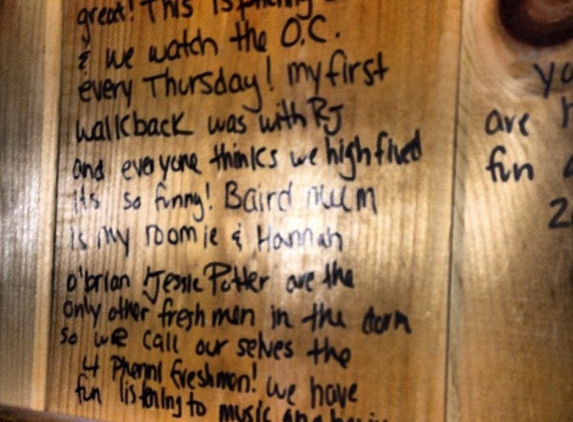 great! This is
& we watch the O.C.
every Thursday! my first
walkback was with RJ
and everyone thinks we highfived
its so funny! Baird mum
is my roomie & Hannah
o'brian & Jessie Potter are the
only other freshman in the dorm
so we call our selves the
4 Phenni freshmon! we have
fun listening to music
yo
are h
fun
20